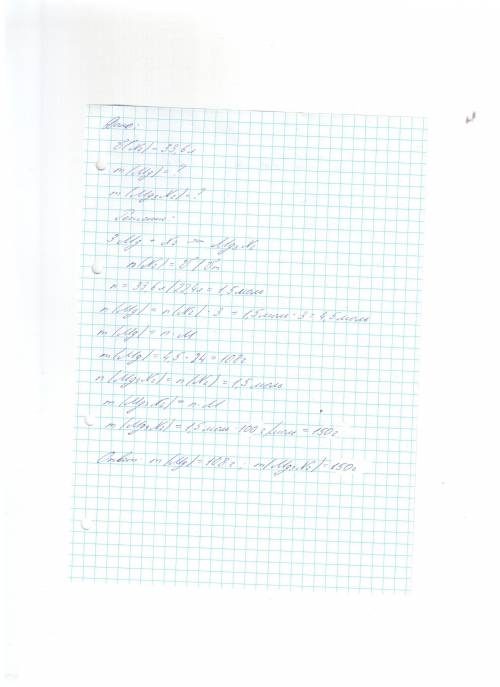 Дано:
V(N₂) = 33,6 л
m(Mg) = ?
m(Mg₃N₂) = ?
Решение:
3Mg + N₂ = Mg₃N₂
n(N₂) = V / Vm
n = 33,6 л / 22,4 л = 1,5 моль
n(Mg) = n(N₂) · 3 = 1,5 моль · 3 = 4,5 моль
m(Mg) = n · M
m(Mg) = 4,5 · 24 = 108 г
n(Mg₃N₂) = n(N₂) = 1,5 моль
m(Mg₃N₂) = n · M
m(Mg₃N₂) = 1,5 моль · 100 г/моль = 150 г
Ответ: m(Mg) = 108 г; m(Mg₃N₂) = 150 г